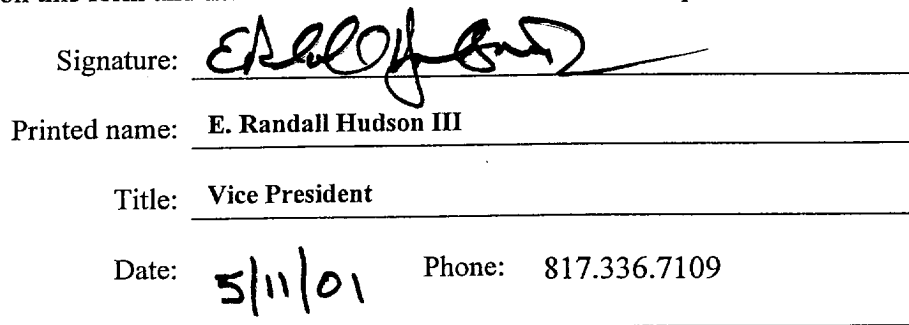 Signature: E Randall Hudson III
Printed name: E. Randall Hudson III
Title: Vice President
Date: 5/11/01 Phone: 817.336.7109